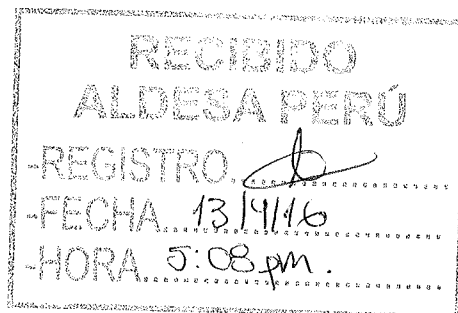 RECIBIDO
ALDESA PERÚ
-REGISTRO
-FECHA 13/4/16
-HORA 5:08 pm.